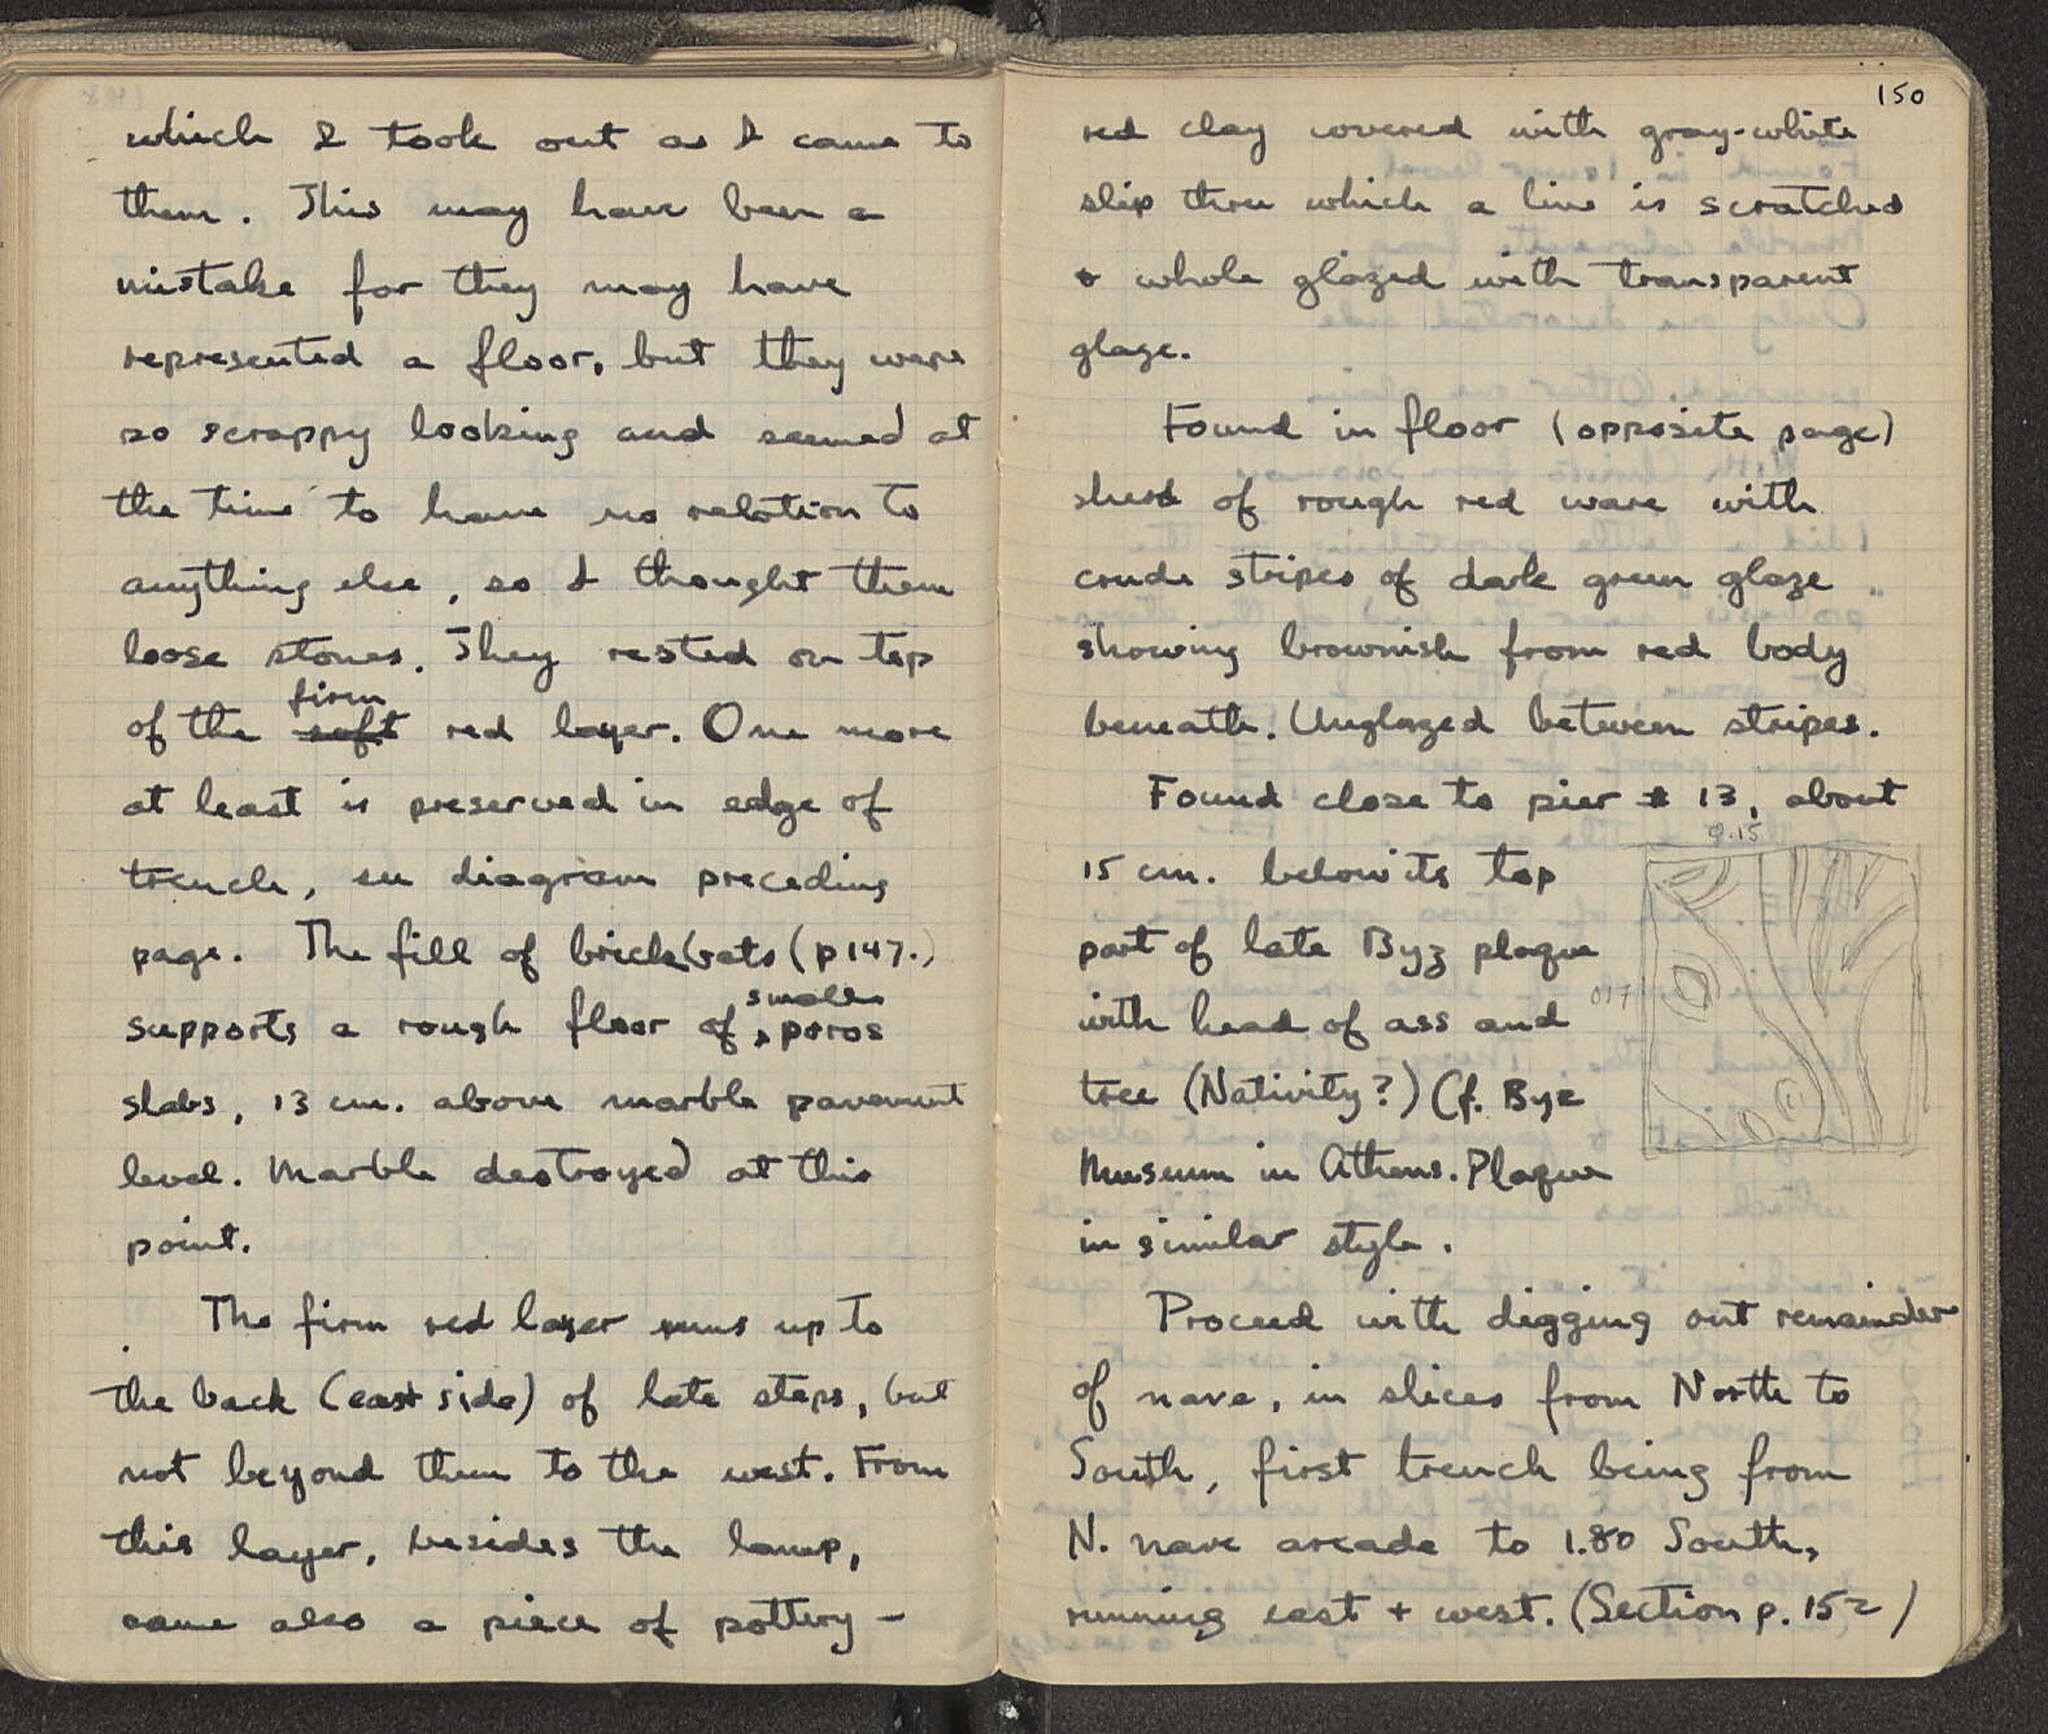 which I took out as I came to
them. This may have been a
mistake for they may have
represented a floor, but they were
so scrappy looking and seemed at
the time to have no relation to
anything else, so I thought them
loose stones. They rested on top
firm
of the soft red layer. One more
at least is preserved in edge of
trench, in diagram preceding
page. The fill of brickbats (p 147.)
small
supports a rough floor of poros
slabs, 13 cm. above marble pavement
level. Marble destroyed at this
point.
The firm red layer runs up to
the back (east side) of late steps, but
not beyond them to the west. From
this layer, besides the lamp,
came also a piece of pottery -
150
red clay covered with gray-white
slip thru which a line is scratched
+ whole glazed with transparent
glaze.
Found in floor (opposite page)
sherd of rough red ware with
crude stripes of dark green glaze
showing brownish from red body
beneath. Unglazed between stripes.
Found close to pier # 13, about
0.15
15 cm. below its top
part of late Byz plaque
017
with head of ass and
tree (Nativity?) Cf. Byz
Museum in Athens. Plaque
in similar style.
Proceed with digging out remainder
of nave, in slices from North to
South, first trench being from
N. nave arcade to 1.80 South,
running east + west. (Section p. 152)